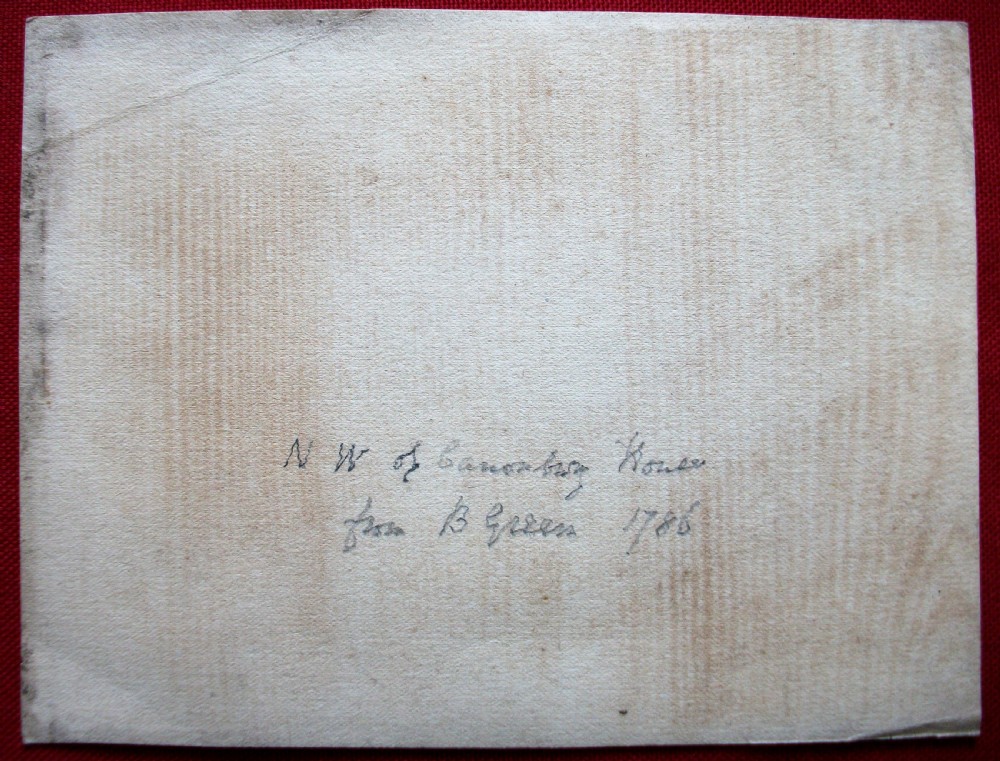 N W of Canonbury House
from B Green 1786